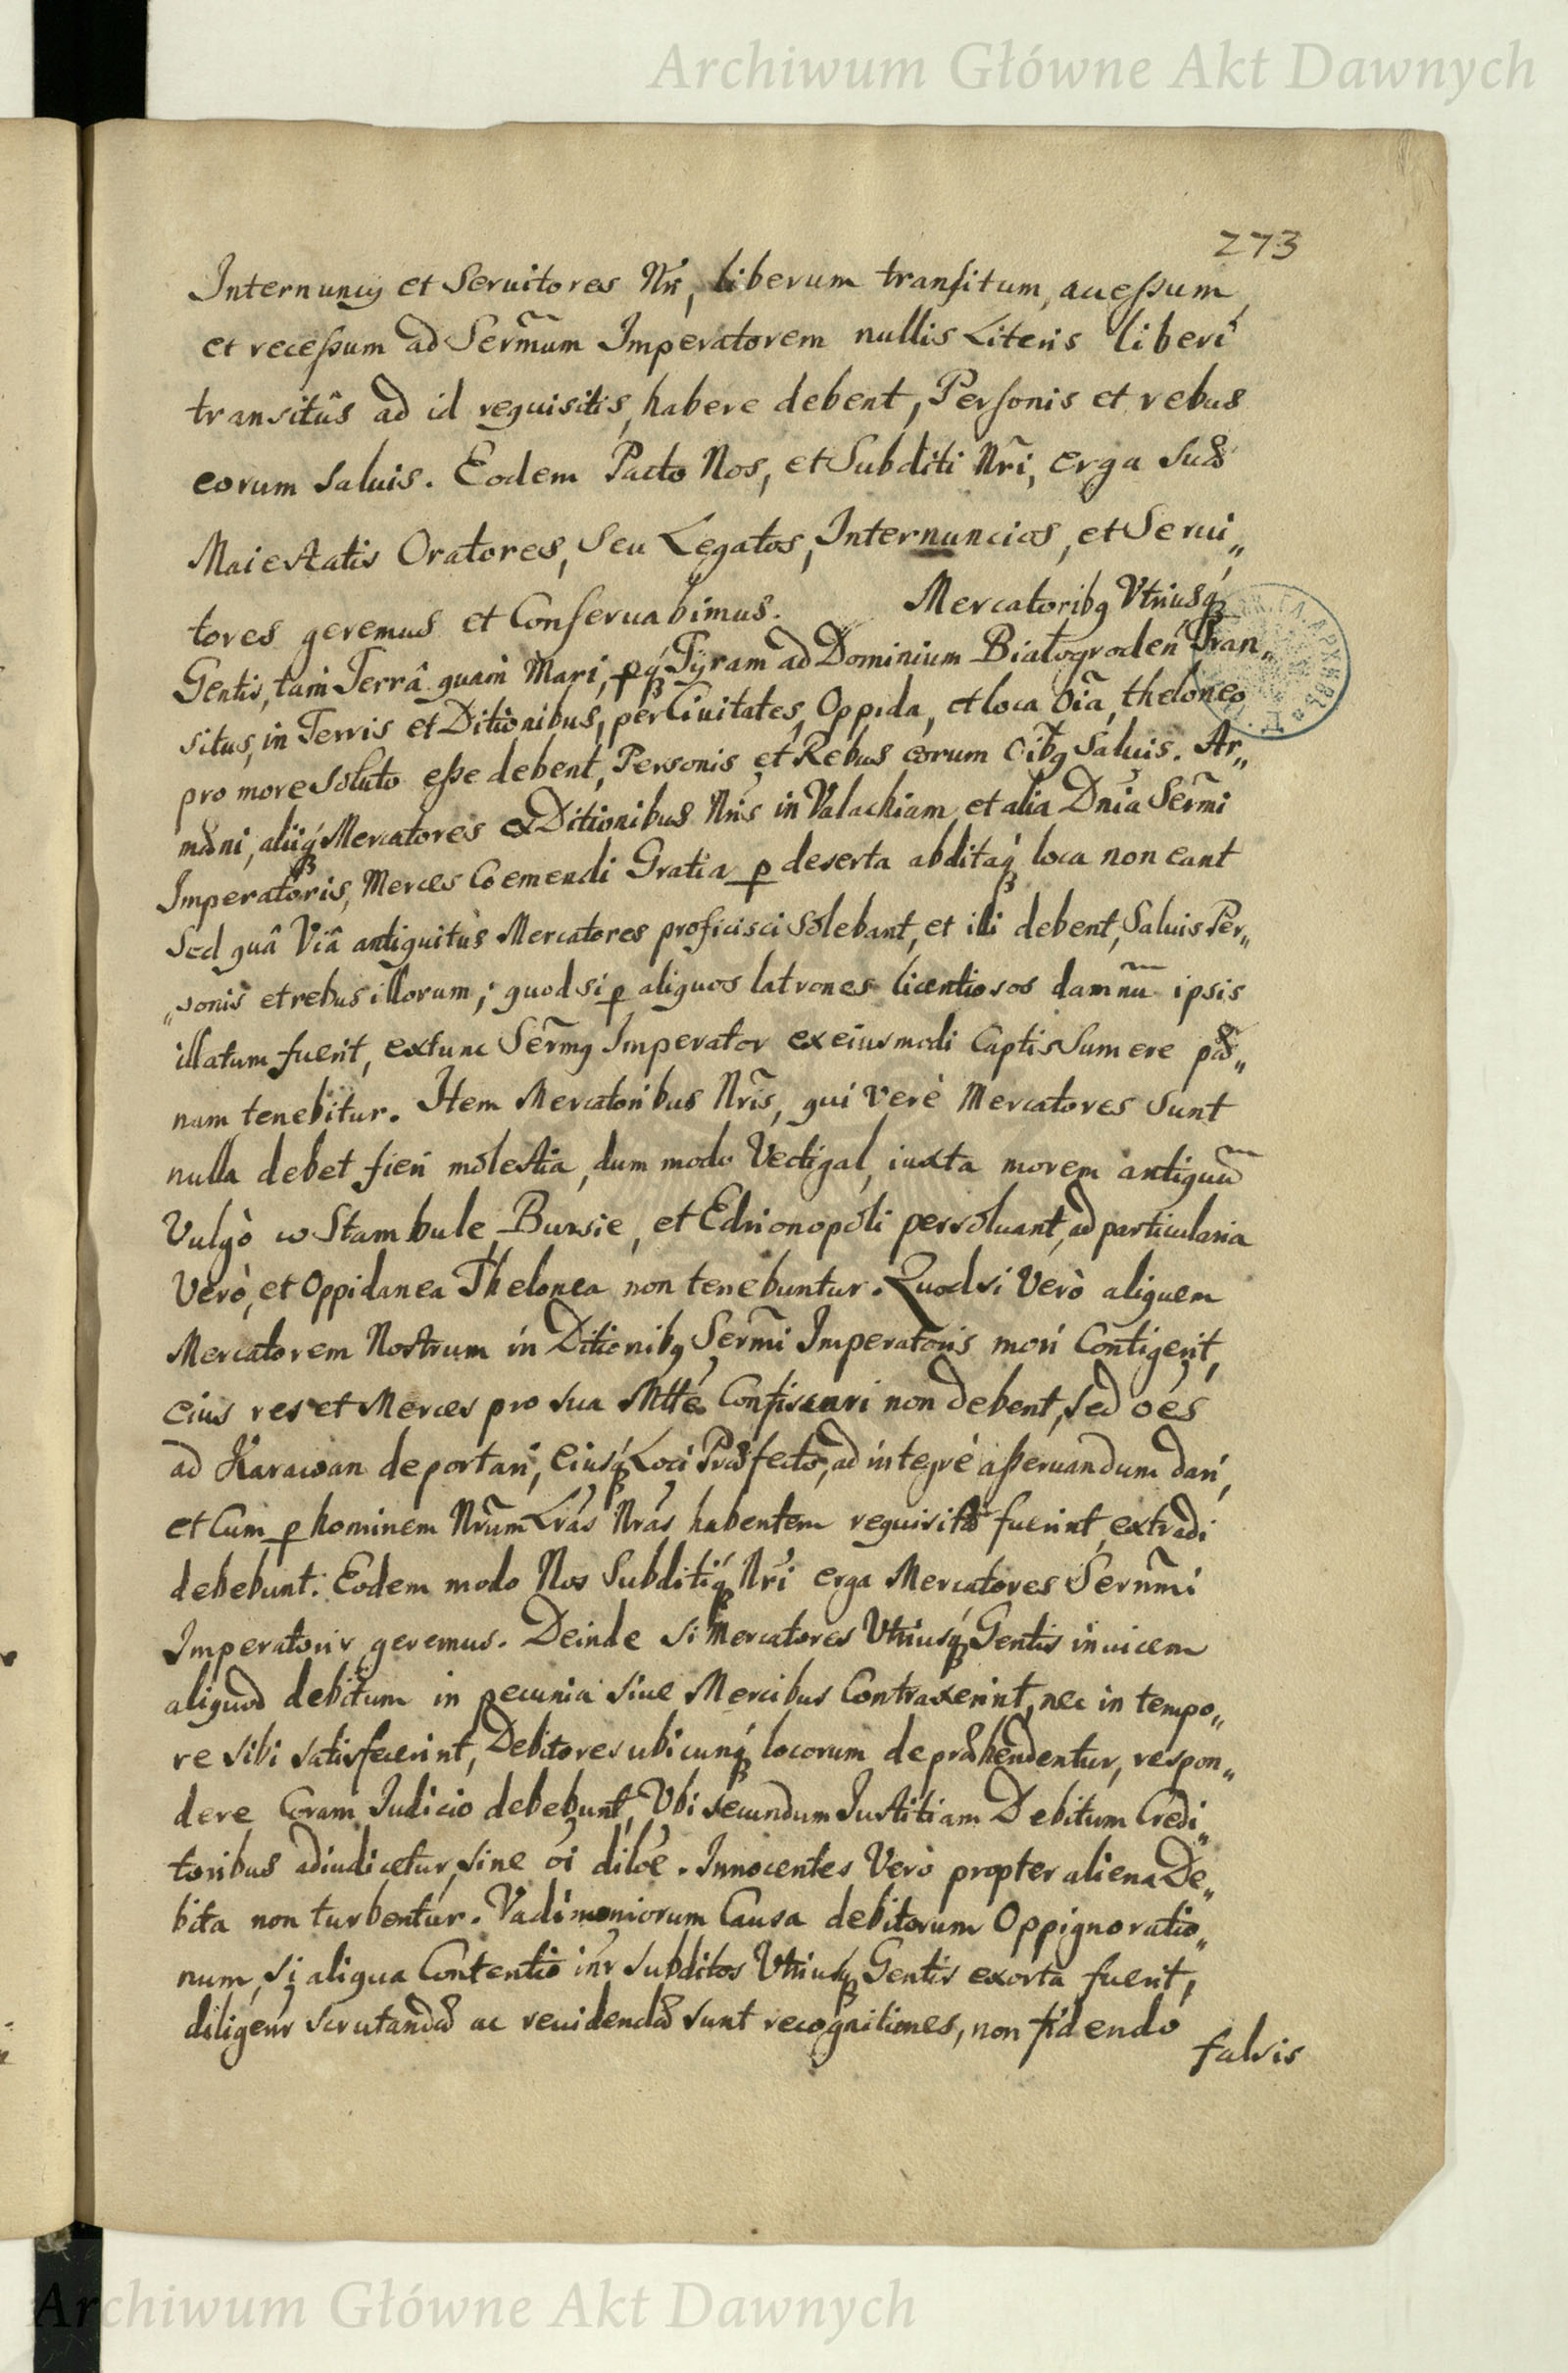 Archiwum Główne Akt Dawnych
273
Internuncij et Seruitores Nri, liberum transitum, accessum
et recessum ad Sermum Imperatorem nullis Literis liberi
transitûs ad id requisitis, habere debent, Personis et rebus
eorum saluis. Eodem Pacto Nos, et Subditi Nri, erga suæ
Maiestatis Oratores, seu Legatos, Internuncios, et Serui„
tores geremus et Conseruabimus. Mercatoribq Vtriusq́
Gentis, tam Terrâ quam Mari, pq́ Tyram ad Dominium Białogroden Tran„
situs, in Terris et Ditionibus, per Ciuitates, Oppida, et loca oĩa, theloneo
pro more soluto esse debent, Personis et Rebus eorum oĩbq Saluis. Ar„
mæni, aliiq́ Mercatores ex Ditionibus Nris in Valachiam et alia Dnia Sermi
Imperatoris, Merces Coemendi Gratia p deserta abditaq́ loca non eant
Sed quâ Viâ antiquitùs Mercatores proficisci solebant, et illi debent, Saluis Per„
„sonis et rebus illorum; quod si p aliquos latrones licentiosos damnũ ipsis
illatum fuerit, extunc Sermq Imperator ex eiusmodi Captis Sumere pæ„
nam tenebitur. Item Mercatoribus Nris, qui verè Mercatores Sunt
nulla debet fieri molestia, dum modo Vectigal, iuxta morem antiquũ
Vulgò w Stambule, Bursie, et Edrionopoli persoluant, ad particularia
Verò, et Oppidanea Thelonea non tenebuntur. Quod si Verò aliquem
Mercatorem Nostrum in Ditionibq Sermi Imperatoris mori Contigerit,
eius res et Merces pro sua Mtte Confiscari non debent, sed oẽs
ad Karawan deportari, eiusq́ Loci Præfecto, ad integrè asseruandum dari,
et Cum p hominem Nrum Lras Nras habentem requisitæ fuerint, extradi
debebunt. Eodem modo Nos Subditiq́ Nri erga Mercatores Serñmi
Imperatoris geremus. Deinde si Mercatores Vtriusq́ Gentis inuicem
aliquod debitum in pecunia siue Mercibus Contraxerint, nec in tempo„
re sibi satisfecerint, Debitores ubicunq́ locorum depræhendentur, respon„
dere Coram Iudicio debebunt, Vbi secundum Iustitiam Debitum Credi„
toribus adiudicetur, sine oi diloe. Innocentes Verò propter aliena De„
bita non turbentur. Vadimoniorum Causa debitorum Oppignoratio„
num, si aliqua Contentio intr subditos Vtriusq́ Gentis exorta fuerit,
diligentr scrutandæ ac reuidendæ sunt recognitiones, non fidendo
falsis
Archiwum Główne Akt Dawnych